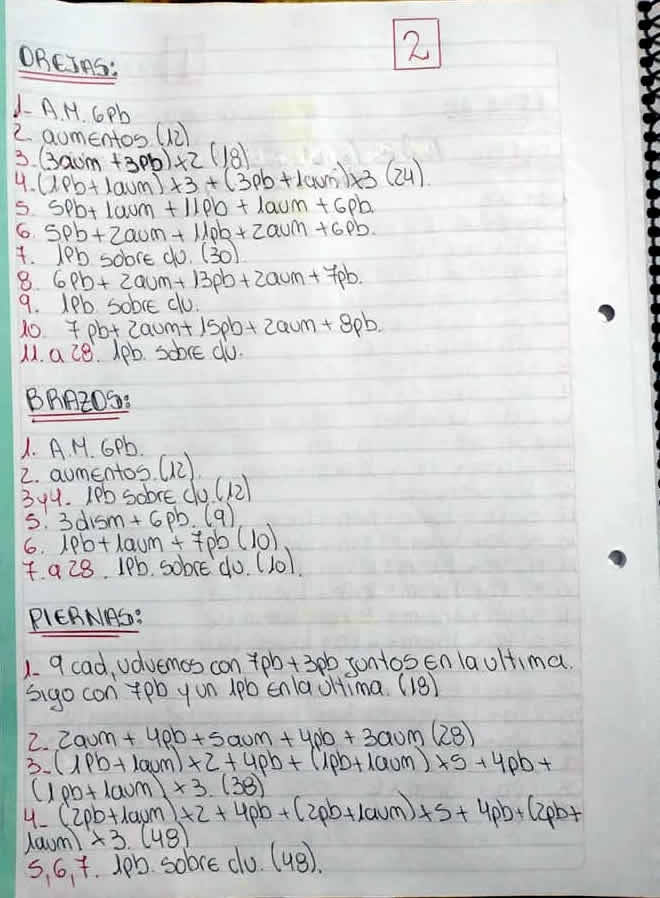 2
OREJAS:
1- A.M. 6pb
2. aumentos. (12)
3. (3aum + 3pb) x2 (18)
4. (1pb + 1aum) x3 + (3pb + 1aum) x3 (24).
5. 5pb + 1aum + 11pb + 1aum + 6pb.
6. 5pb + 2aum + 11pb + 2aum + 6pb.
7. 1pb sobre c/u. (30)
8. 6pb + 2aum + 13pb + 2aum + 7pb.
9. 1pb. sobre c/u.
10. 7pb + 2aum + 15pb + 2aum + 8pb.
11. a 28. 1pb. sobre c/u.
BRAZOS:
1. A.M. 6pb.
2. aumentos. (12).
3 y 4. 1pb sobre c/u (12)
5. 3dism + 6pb. (9)
6. 1pb + 1aum + 7pb (10)
7. a 28. 1pb. sobre c/u. (10).
PIERNAS:
1- 9 cad, volvemos con 7pb + 3pb juntos en la ultima.
sigo con 7pb y un 1pb en la ultima. (18)
2. 2aum + 4pb + 5aum + 4pb + 3aum (28)
3- (1pb + 1aum) x2 + 4pb + (1pb + 1aum) x5 + 4pb +
(1pb + 1aum) x3. (38)
4- (2pb + 1aum) x2 + 4pb + (2pb + 1aum) x5 + 4pb + (2pb +
1aum) x3. (48)
5, 6, 7. 1pb. sobre c/u. (48).